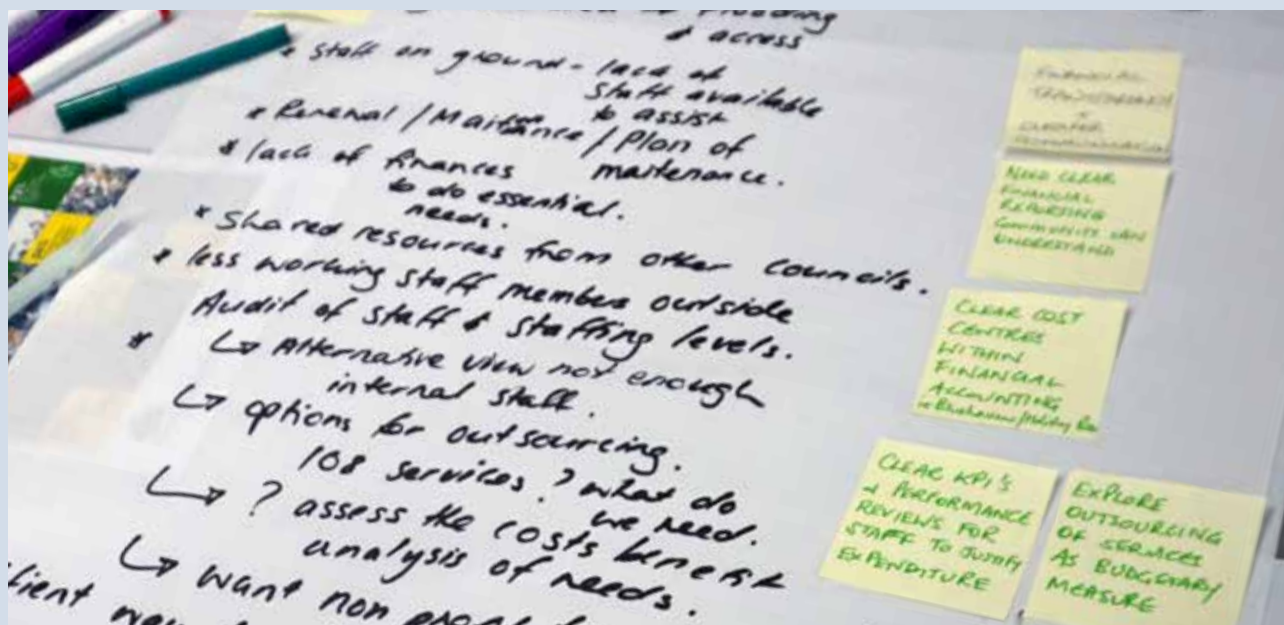 & access
* Staff on ground - lack of
staff available
to assist
* Renewal / Maitance / Plan of
maitenance.
* lack of finances
to do essential.
needs.
* Shared resources from other councils.
* less working staff member outside
Audit of staff & staffing levels.
* ↳ Alternative view not enough
internal staff.
↳ options for outsourcing.
108 services? what do
we need.
↳ ? assess the costs benefit
analysis of needs.
↳ want non
FINANCIAL
NEED CLEAR
FINANCIAL
REPORTING
COMMUNITY CAN
UNDERSTAND
CLEAR COST
CENTRES
WITHIN
FINANCIAL
ACCOUNTING
CLEAR KPI'S
+ PERFORMANCE
REVIEWS FOR
STAFF TO JUSTIFY
EXPENDITURE
EXPLORE
OUTSOURCING
OF SERVICES
AS BUDGETARY
MEASURE